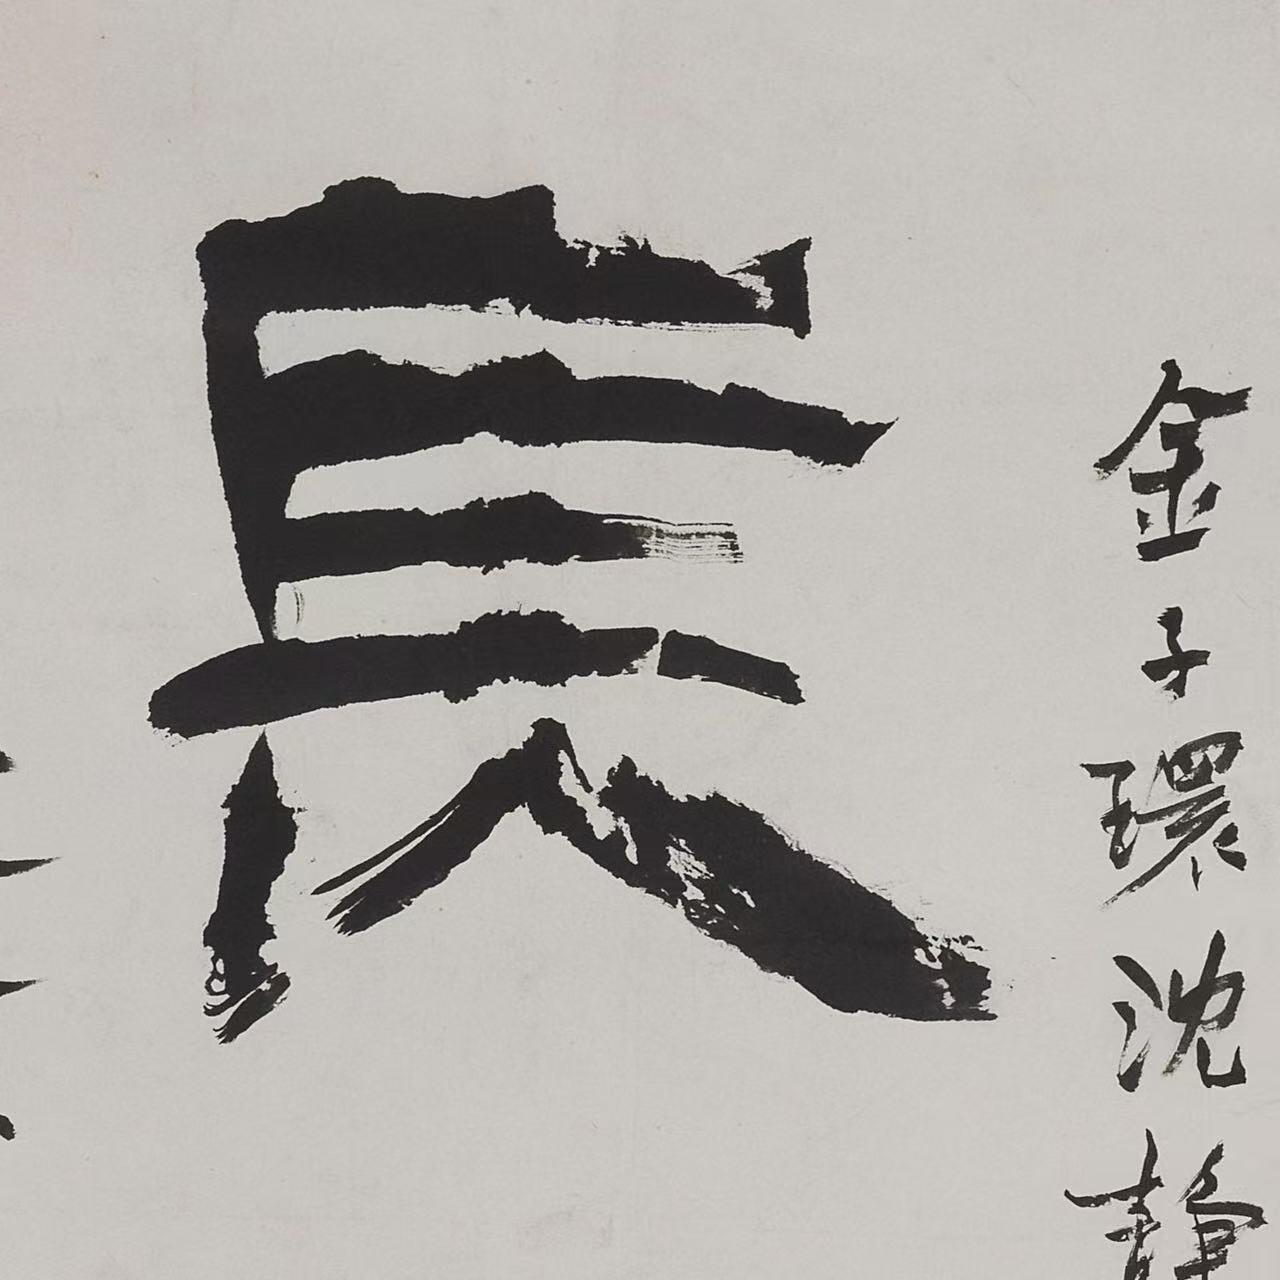 金子環沈静
長